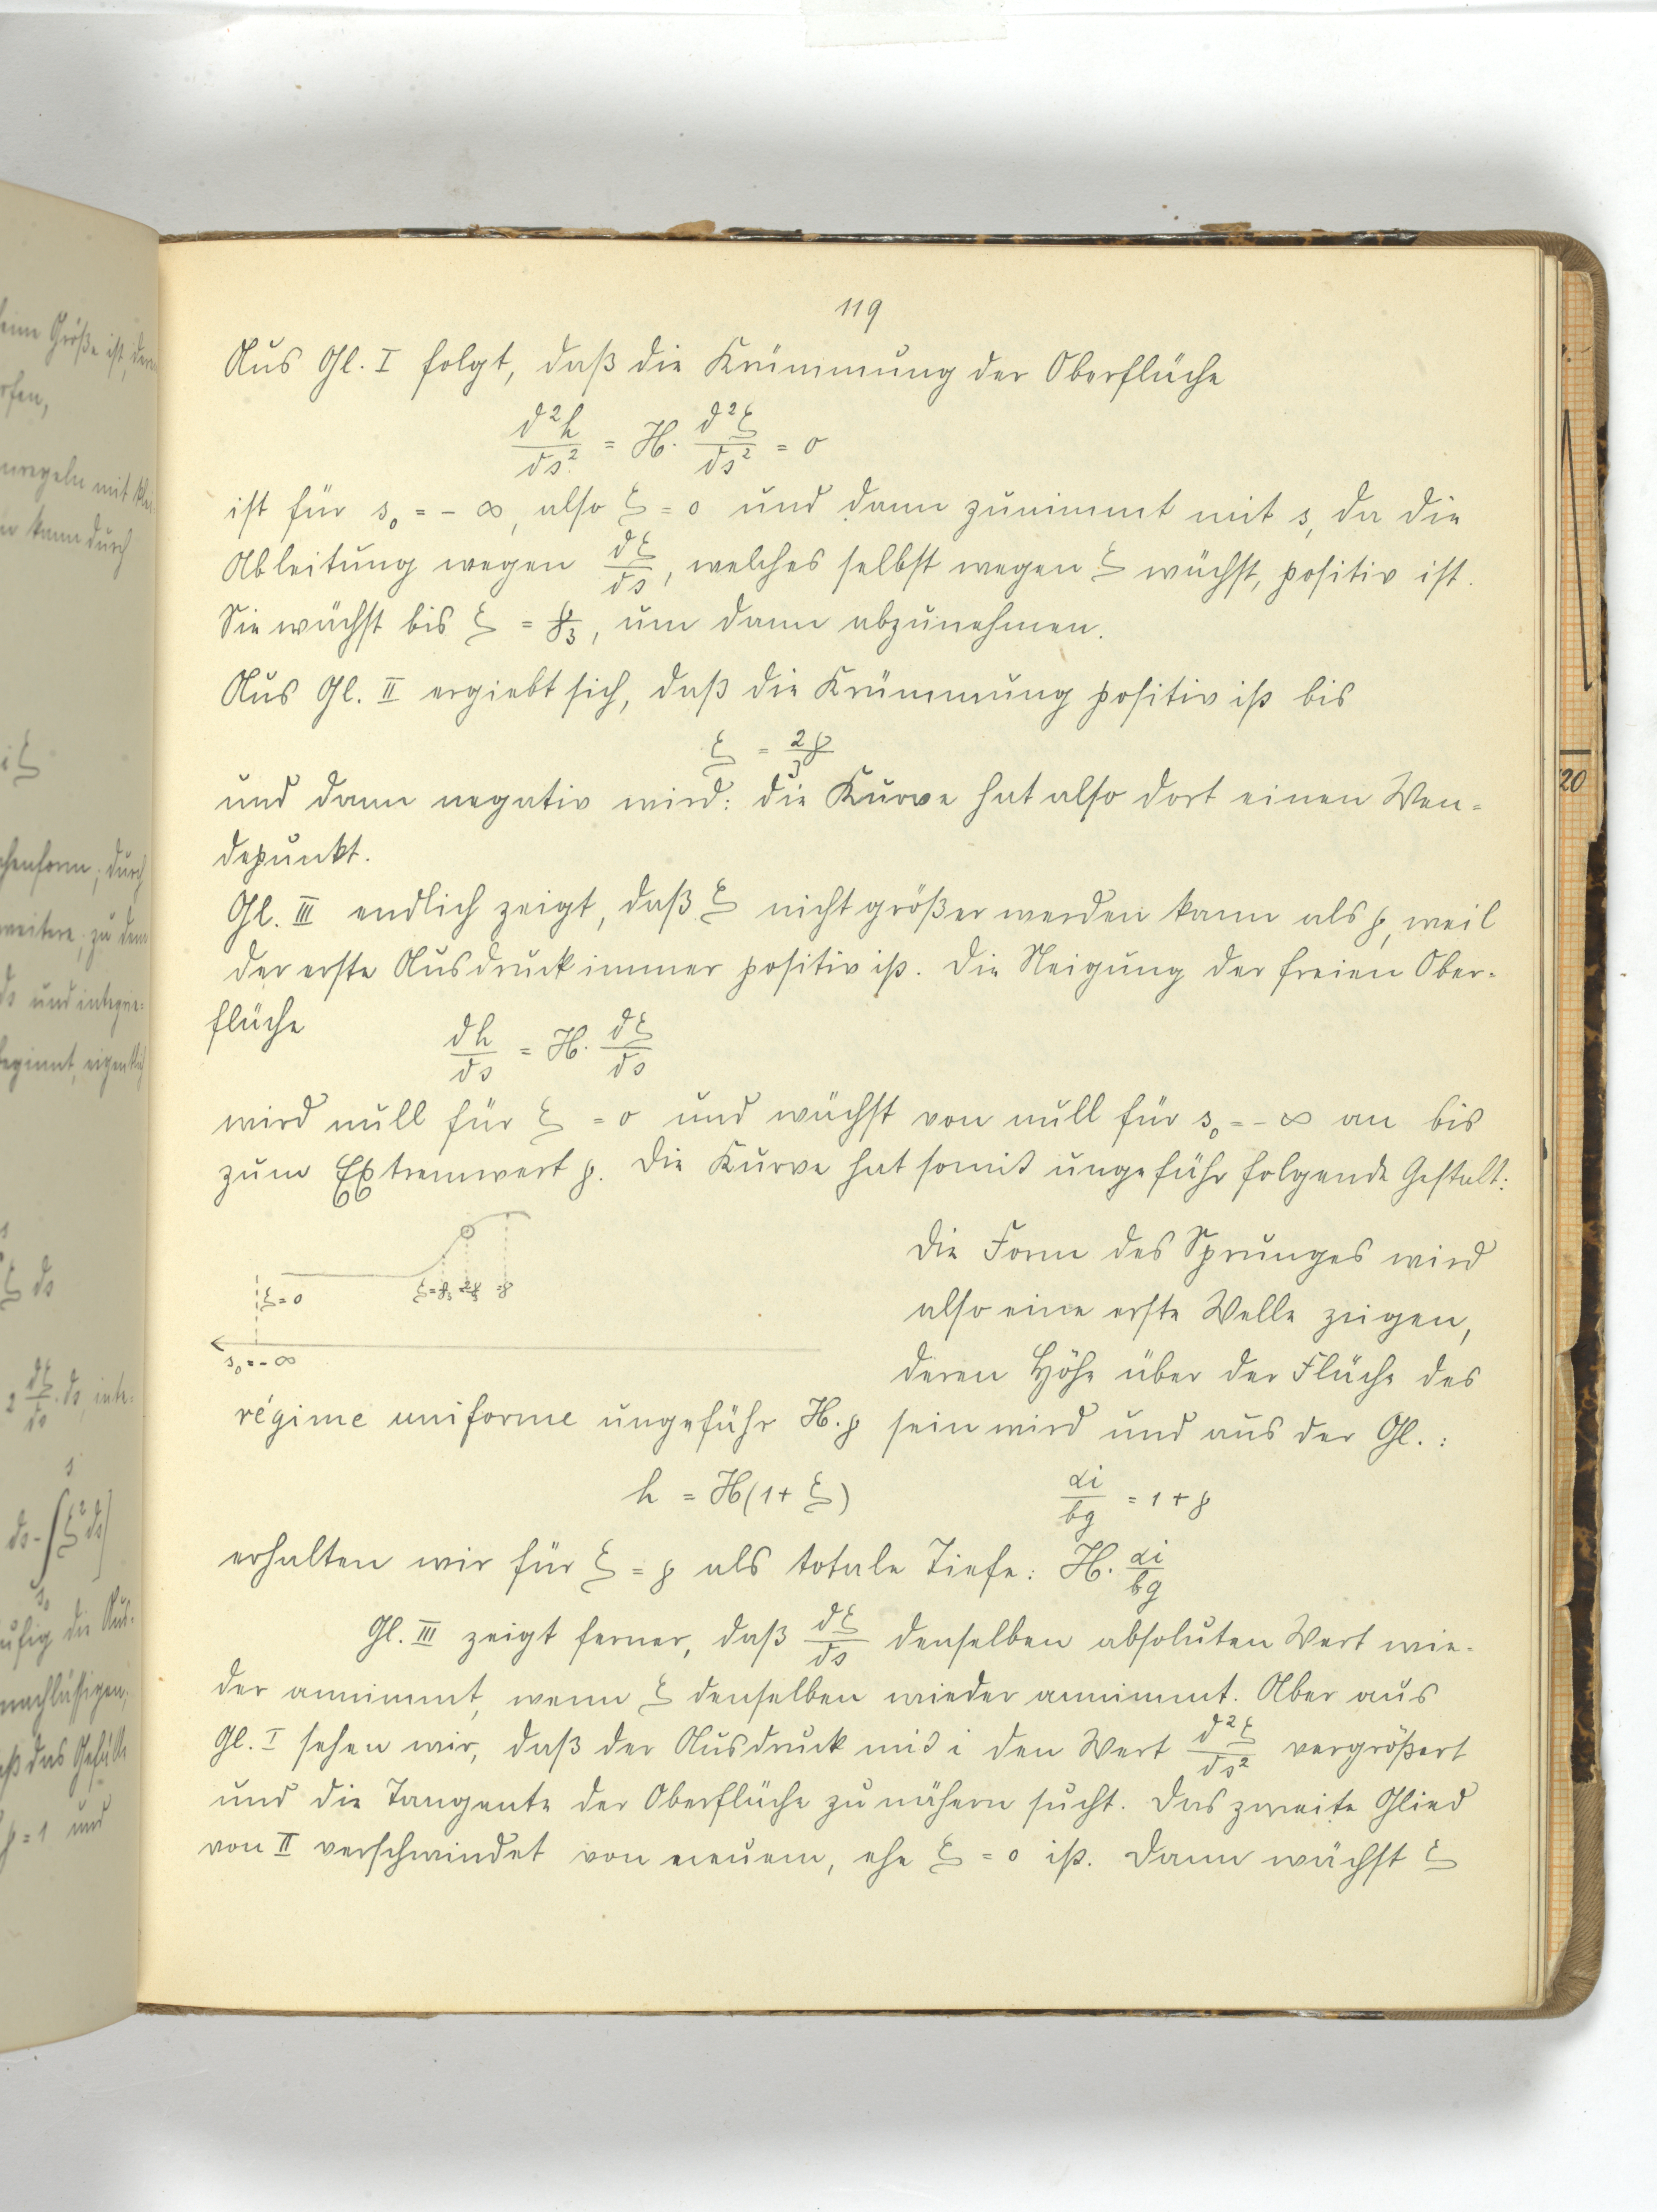 119
Aus Gl. I folgt, daß die Krümmung der Oberfläche
d²h/ds² = H · d²ξ/ds² = 0
ist für s₀ = - ∞, also ξ = 0 und dann zunimmt mit s, da die
Ableitung wegen dξ/ds, welches selbst wegen ξ wächst, positiv ist.
Sie wächst bis ξ = p/3, um dann abzunehmen.
Aus Gl. II ergiebt sich, daß die Krümmung positiv ist bis
ξ = 2p/3
und dann negativ wird: die Kurve hat also dort einen Wen=
depunkt.
Gl. III endlich zeigt, daß ξ nicht größer werden kann als p, weil
der erste Ausdruck immer positiv ist. Die Neigung der freien Ober=
fläche
dh/ds = H · dξ/ds
wird null für ξ = 0 und wächst von null für s₀ = - ∞ an bis
zum Extremwert p. Die Kurve hat somit ungefähr folgende Gestalt:
ξ = 0 ξ = p/3 = 2p/3 = p
s₀ = - ∞
Die Form des Sprunges wird
also eine erste Welle zeigen,
deren Höhe über der Fläche des
régime uniforme ungefähr H · p sein wird und aus der Gl. :
h = H(1 + ξ) αi/bg = 1 + p
erhalten wir für ξ = p als totale Tiefe: H · αi/bg
Gl. III zeigt ferner, daß dξ/ds denselben absoluten Wert wie=
der annimmt, wenn ξ denselben wieder annimmt. Aber aus
Gl. I sehen wir, daß der Ausdruck mit i den Wert d²ξ/ds² vergrößert
und die Tangente der Oberfläche zu nähern sucht. Das zweite Glied
von II verschwindet von neuem, ehe ξ = 0 ist. Dann wächst ξ